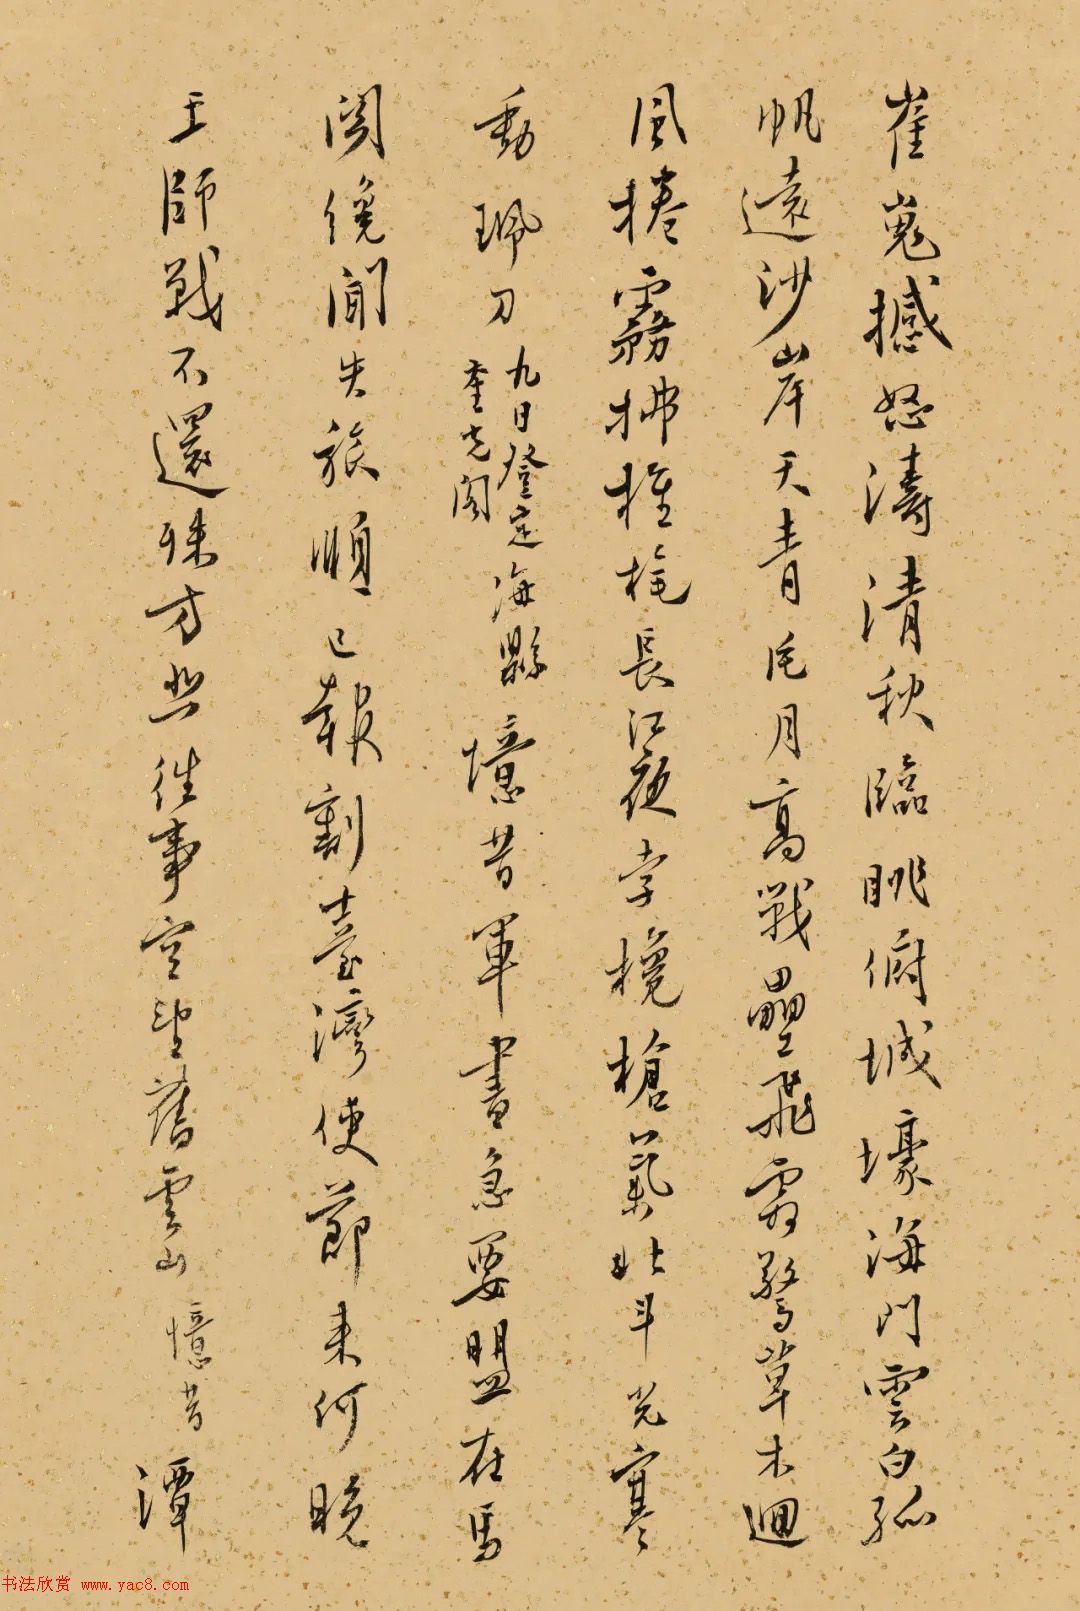 崔嵬撼怒濤清秋臨眺俯城壕海門雲白孤
帆遠沙岸天青匹月高戰壘飛霜驚草木迴
風捲霧拂旌旄長江夜孛欃槍氣北斗光寒
動珮刀 九日登定海縣
奎光閣
憶昔軍書急要盟在馬
關俛聞失旅順已報割臺灣使節來何晚
王師戰不還殊方悲往事空望舊雲山 憶昔 潭
书法欣赏 www.yac8.com